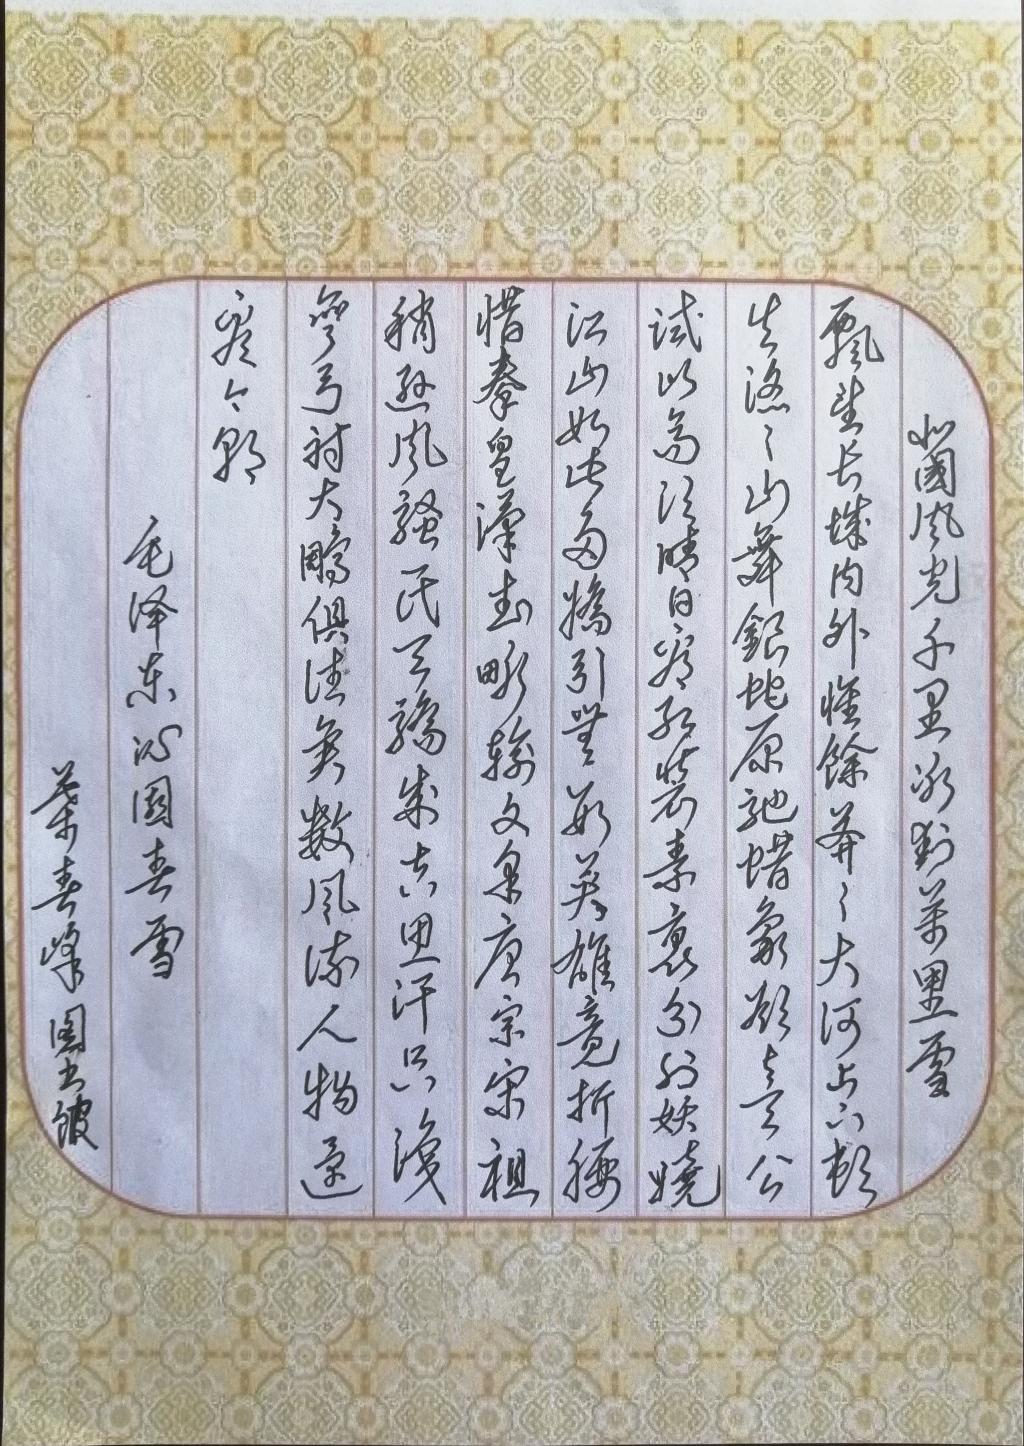 北國风光千里冰封萬里雪
飘望长城内外惟餘莽〻大河上下顿
失滔〻山舞銀蛇原驰蜡象欲与天公
试比高须晴日看红装素裹分外妖娆
江山如此多嬌引無数英雄竟折腰
惜秦皇漢武略输文采唐宗宋祖
稍逊风骚一代天骄成吉思汗只识
彎弓射大鵰俱往矣数風流人物还
看今朝
毛泽东沁園春雪
葉春峰图书